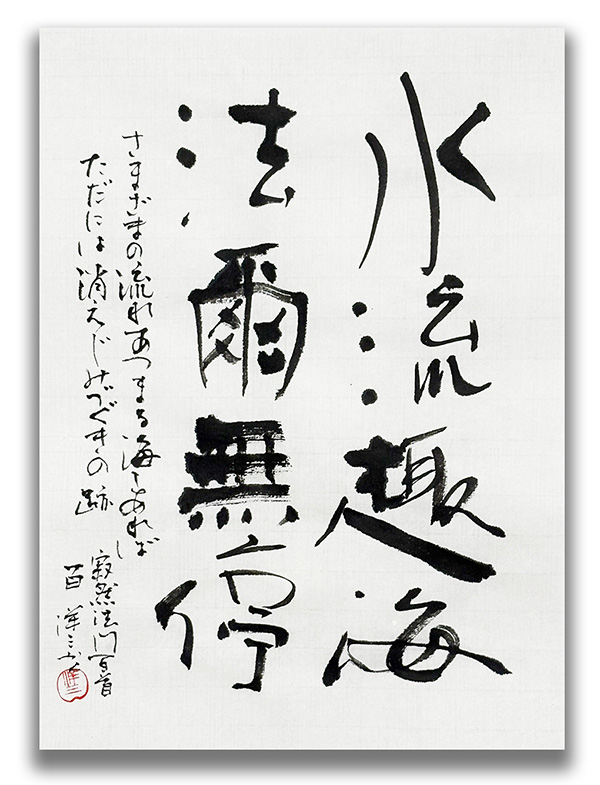 水流趣海
法爾無停
さまざまの流れあつまる海しあれば
ただには消えじみづぐきの跡
寂然法門百首
洋三